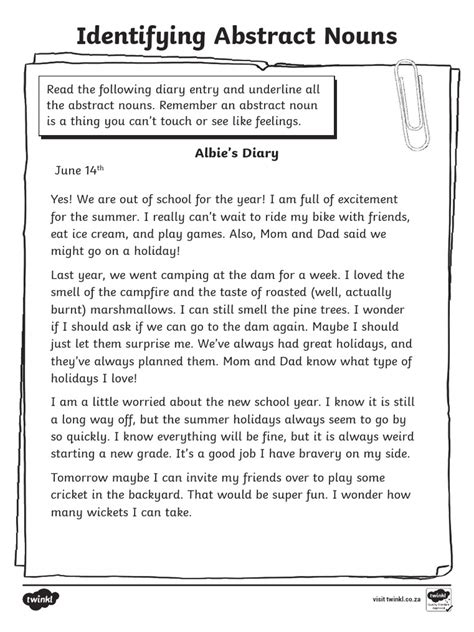 Identifying Abstract Nouns
Read the following diary entry and underline all
the abstract nouns. Remember an abstract noun
is a thing you can't touch or see like feelings.
Albie's Diary
June 14th
Yes! We are out of school for the year! I am full of excitement
for the summer. I really can't wait to ride my bike with friends,
eat ice cream, and play games. Also, Mom and Dad said we
might go on a holiday!
Last year, we went camping at the dam for a week. I loved the
smell of the campfire and the taste of roasted (well, actually
burnt) marshmallows. I can still smell the pine trees. I wonder
if I should ask if we can go to the dam again. Maybe I should
just let them surprise me. We've always had great holidays, and
they've always planned them. Mom and Dad know what type of
holidays I love!
I am a little worried about the new school year. I know it is still
a long way off, but the summer holidays always seem to go by
so quickly. I know everything will be fine, but it is always weird
starting a new grade. It's a good job I have bravery on my side.
Tomorrow maybe I can invite my friends over to play some
cricket in the backyard. That would be super fun. I wonder how
many wickets I can take.
twinkl
visit twinkl.co.za
twinkl